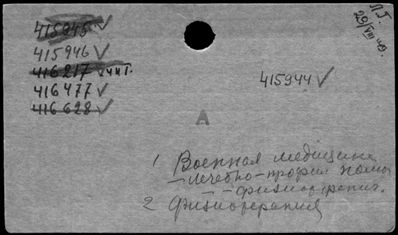 415845 ✓
415946 ✓
416217 ✓ чит.
416477 ✓
416628 ✓
415944 ✓
ЛГ.
29/VIII 49.
А
1 Военная медицина
– лечебно-профил помо
– физиотерапия.
2 Физиотерапия